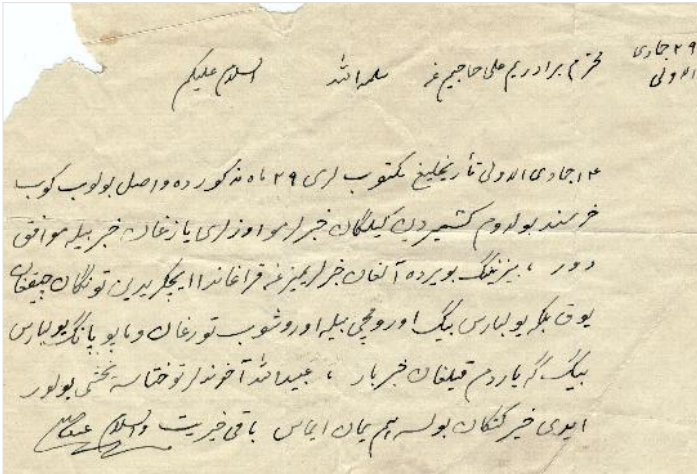 ۲۹ جمادی الاولی
محترم برادریم علی حاجیم غه سلمه الله السلام علیکم
۱۴ جمادی الاولی تأریخلیغ مکتوب لری ۲۹ ماه مذکورده واصل بولوب کوب
خرسند بولدوم کشمیردین کیلگان خبرلر هم اوزلری یازغان خبر بیله موافق
دور ، بیزنینگ بویرده آلغان خبرلریمیزغه قراغاندا ایچکریدین تونگان چیققان
یوق بلکه یولبارس بیگ اورومچی بیله اوروشوب تورغان و مابوبانگ یولبارس
بیگ گه یاردم قیلغان خبر بار ، عبیدالله آخوندلر توختاسه یخشی بولور
ایدی خیر کتکان بولسه هم یمان ایماس باقی خیریت والسلام